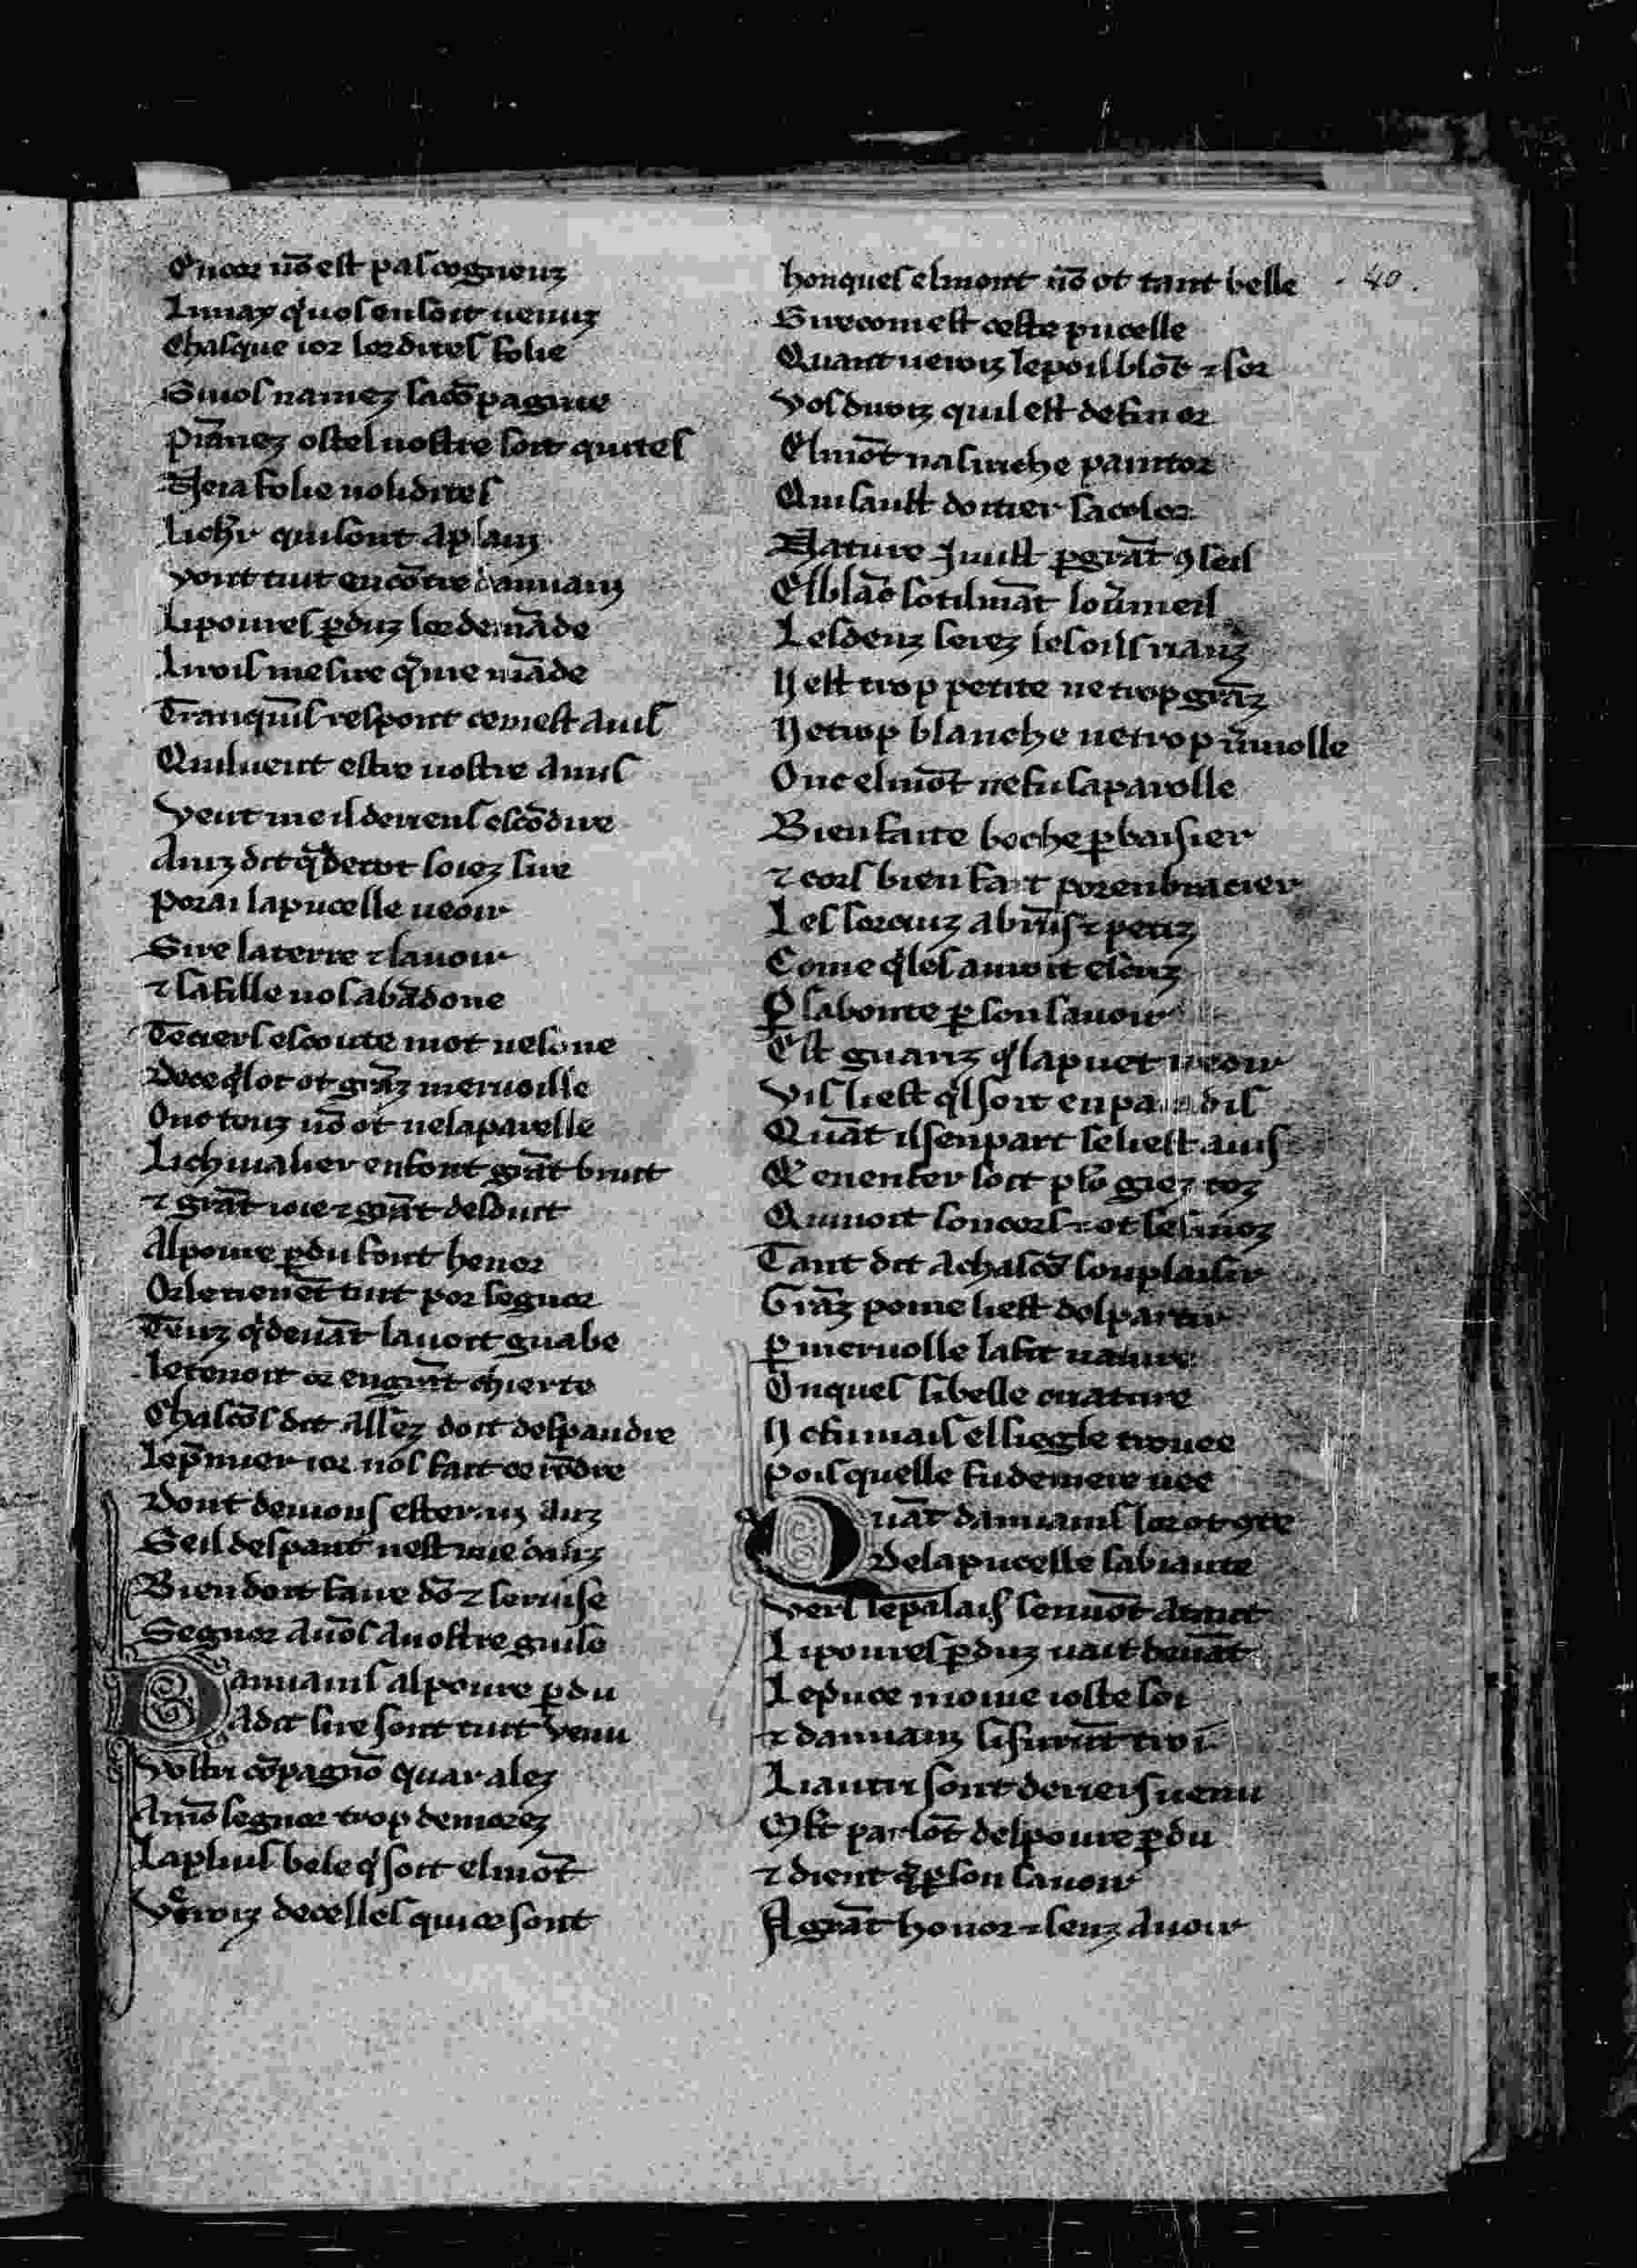 Encor nō est pas cogneuz
Li uray q̄ uos en soit uenuz
Chasque ior lor dites folie
Si uos n amez sa cōpagnie
Prānez ostel nostre soit quites
Neia folie no li dites
Li cheualier qui sont a plain
Vont tuit encōtre danuainz
Li poures ꝑduz lor demāde
Li rois mesire q̄ me māde
Tranquīl respont ce mest auis
Qui li uent estre nostre amis
Vent me il deriens escōdire
Ainz dit q̄ de tot soiez sire
Porai la pucelle ueoir
Sire la terre ⁊ l auoir
⁊ sa fille uos abādone
Teciers escoute mot ne sone
De ce q̄l ot ot grāz meruoille
Onc touz nō ot ne la parelle
Li cheualier en font grāt bruit
⁊ grāt ioie ⁊ grāt desduit
Al poure ꝑdu font henor
Or le tienēt tuit por segnor
Teuz q̄ deuāt l auoit guabe
Le tenoit or en grāt chierte
Chascōs dit assez doit despandre
Le pmier ior nos fait ce rēdre
Dont deuions ester
Se il despant nest mie danz
Bien doit faire dō ⁊ seruise
Segnor auōs a nostre guise
Danuains al poure ꝑdu
A dit sire sont tuit venu
Vostri cōpagnō quar alez
A mō segnor trop demorez
La plus bele q̄ soit el mōt
Verroiz de celles qui ce sont
honques el mont nō ot tant belle
Sire com est ceste pucelle
Quant ueroiz le poil blōt ⁊ sor
Vos diroiz quil est de fin or
El mōt na si riche paintor
Qui saust doner sa color
Nature i mist ꝑ grāt ꝯseil
El blāc sotilmāt lo ūmeil
Les denz serez les oils rianz
Nest trop petite ne trop grāz
Ne trop blanche ne trop ūmolle
Onc el mōt ne fu sa parolle
Bien faite boche ꝑ baisier
⁊ cors bien fait por enbracier
Les sorcuiz a brūs ⁊ petiz
Come q̄ les auroit esliz
ꝑ sa bonte ꝑ son sauoir
Est guariz q̄ la puet ueoir
Vis li est q̄l soit en paradis
Quāt il sen part se li est auis
Q en enfer soit
Qui uoit son cors ⁊ ot ses moz
Tant dit a chascō son plaisir
Grāz poine li est del partir
ꝑ meruolle la fit nature
Onques si belle criature
Ne fu mais el siegle trouee
Pois quelle fu de mere nee
Quāt danuains lor ot ꝯte
De la pucelle sa biaute
Vers le palais senuōt atant
Li poures ꝑduz uait deuāt
Le duce moine ioste soi
⁊ danuainz si furēt troi
Li autri sont deriers uenu
Mlt parlōt del poure ꝑdu
⁊ dient q̄ ꝑ son sauoir
A grāt honor ⁊ senz auoir
40.